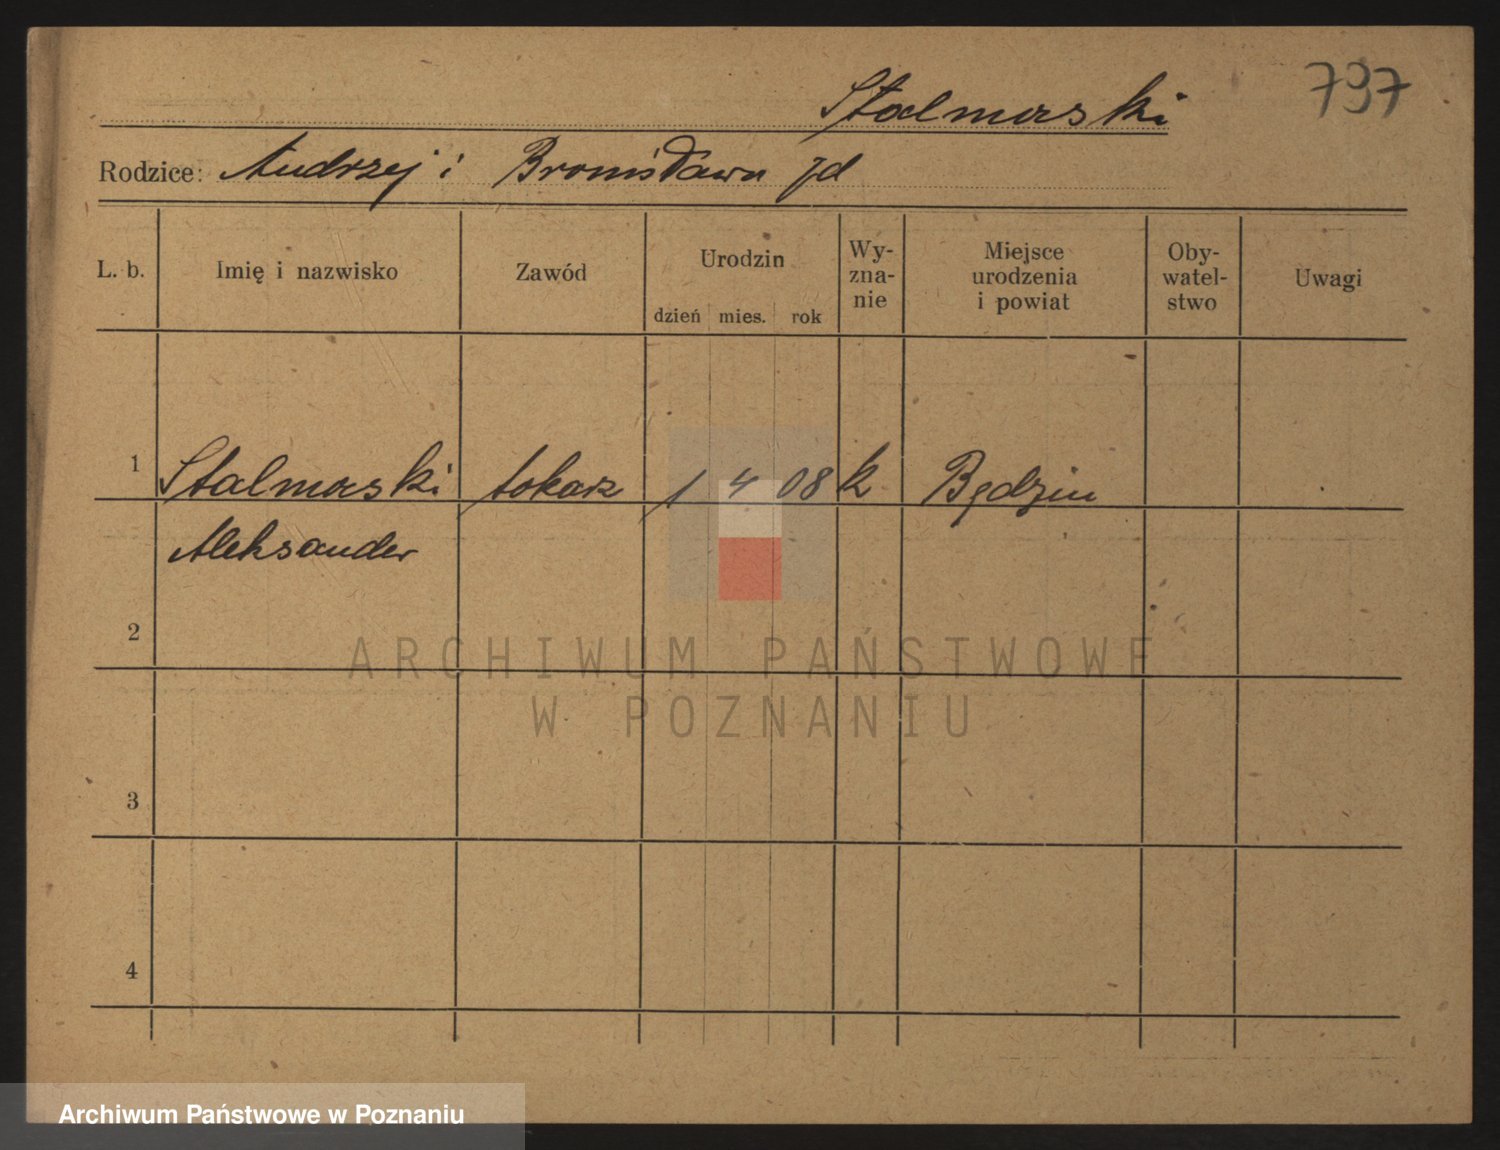 797
Stalmaski
Rodzice: Andrzej i Bronisława jd
L. b. Imię i nazwisko Zawód Urodzin Wy-zna-nie Miejsce urodzenia i powiat Oby-watel-stwo Uwagi
dzień mies. rok
1 Stalmaski tokarz 1 4 08 k Będzin
Aleksander
2
ARCHIWUM PAŃSTWOWE
W POZNANIU
3
4
Archiwum Państwowe w Poznaniu